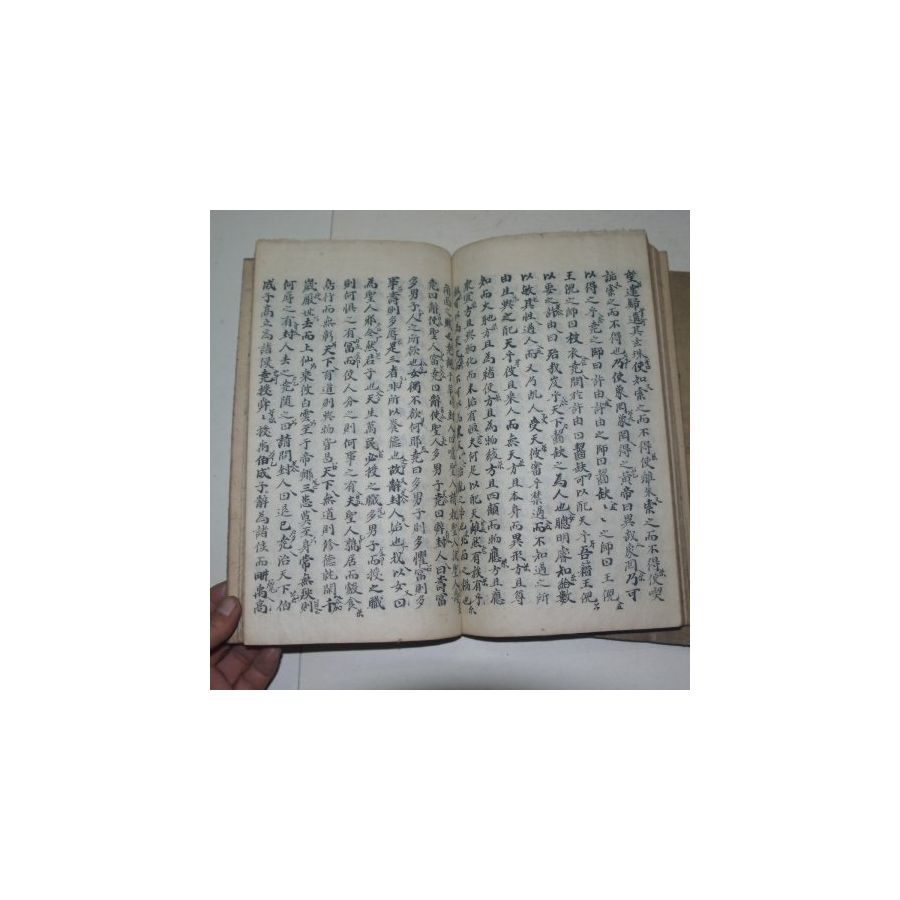 望還歸遺其玄珠使知索之而不得使離朱索之而不得使喫
詬索之而不得也乃使象罔象罔得之黃帝曰異哉象罔乃可
以得之乎堯之師曰許由許由之師曰齧缺〻〻之師曰王倪
王倪之師曰被衣堯問於許由曰齧缺可以配天乎吾藉王倪
以要之許由曰殆哉圾乎天下齧缺之為人也聰明睿知給數
以敏其性過人而又乃以人受天彼審乎禁過而不知過之所
由生與之配天乎彼且乘人而無天方且本身而異形方且尊
知而火馳方且為緒使方且為物絯方且四顧而物應方且應
衆宜方且與物化而未始有恒夫何足以配天乎雖然有族有
堯曰辭使聖人富堯曰辭使聖人多男子堯曰辭封人曰壽富
多男子人之所欲也女獨不欲何耶堯曰多男子則多懼富則多
事壽則多辱是三者非所以養德也故辭封人曰始也我以女曰
為聖人耶今然君子也天生萬民必授之職多男子而授之職
則何懼之有富而使人分之則何事之有夫聖人鶉居而鷇食
鳥行而無彰天下有道則與物皆昌天下無道則修德就閒千
歲厭世去而上仙乘彼白雲至于帝鄉三患莫至身常無殃則
何辱之有封人去之堯隨之曰請問封人曰退已堯治天下伯
成子高立為諸侯堯授舜〻授禹伯成子辭為諸侯而耕禹